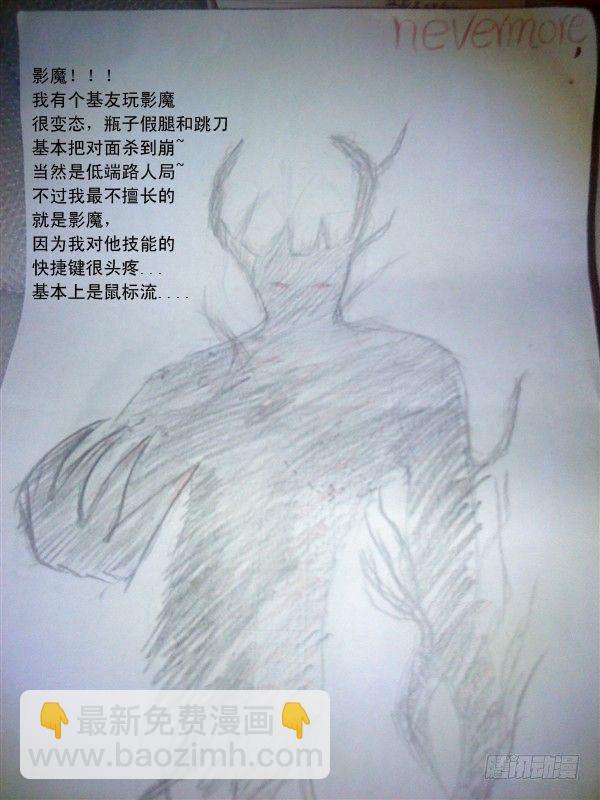 nevermore
影魔！！！
我有个基友玩影魔
很变态，瓶子假腿和跳刀
基本把对面杀到崩~
当然是低端路人局~
不过我最不擅长的
就是影魔，
因为我对他技能的
快捷键很头疼...
基本上是鼠标流....
👇最新免费漫画👇
www.baozimh.com
腾讯动漫